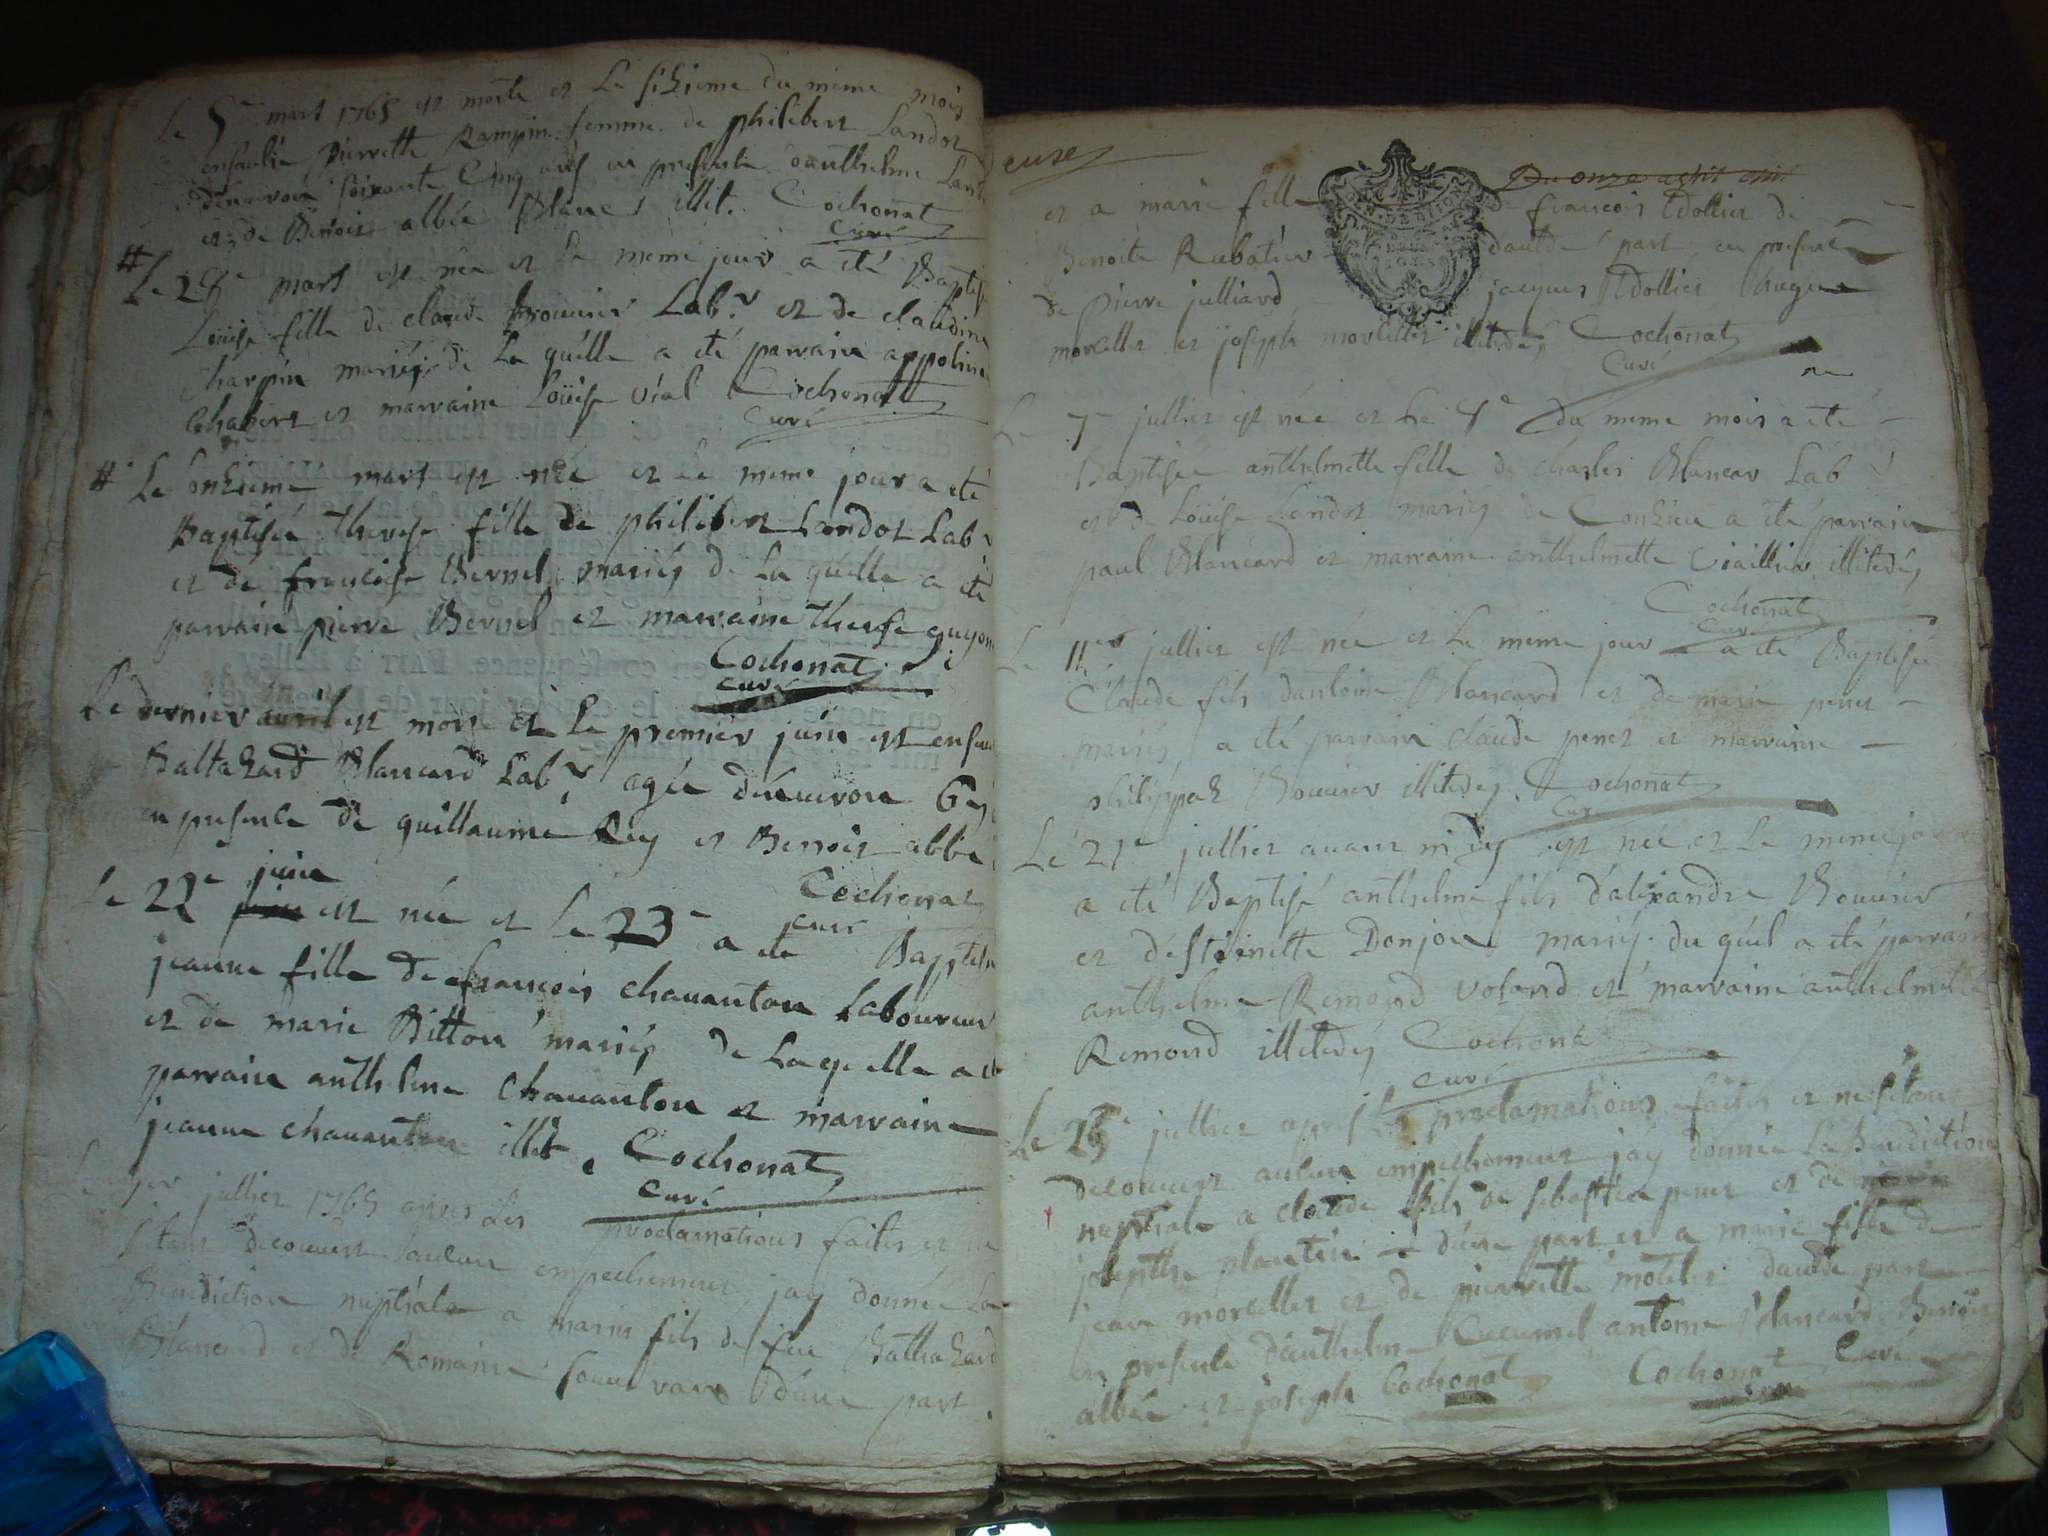 Le 5e mars 1765 est morte et Le sizieme du meme mois
enfevelie pierrette Rampin femme de philibert Landot
d'environ soixante Cinq ans en presence danthelme Land
et de Benoit albée illit. Cochonat
Curé
# Le 28e mars est née et Le meme jour a eté Baptisé
Loüise fille de claude Bouvier Labr et de claudine
Charpin mariés de La quelle a eté parrain appolina
Chabert et marraine Loüise vial Cochonat
Curé
# Le onzieme mars est née et Le meme jour a eté
Baptisée therese fille de philibert Landot Labr
et de francoise Bernel mariés de La quelle a eté
parrain pierre Bernel et marraine therese guyon
Cochonat
curé
Le dernier avril est mort et Le premier juin est ensev
Baltazard Blancard Labr agée d'environ 60
en presence de guillaume Rey et Benoit albée
Cochonat
curé
Le 22e juin est née et Le 23e a eté Baptisée
jeanne fille de francois chavanton Laboureur
et de marie Bitton mariés de Laquelle a eté
parrain anthelme Chavanton et marraine
jeanne chavanton illit. Cochonat
Curé
Le 1er jullier 1765 apres Les proclamations faites et ne
s'etant decouvert aucun empechement jay donnée La
Benediction nuptiale a marin fils de feu Balthazard
Blancard et de Romaine souvrain d'une part.
Du onze
et a marie fille de francois Dollier de
Benoite Rubatier d'autde part en presence
de pierre julliard jacques Dollier hugue
morellet et joseph morellet illitdés Cochonat
Curé
Le 7e jullier est née et Le 8e du meme mois a eté
Baptisée anthelmette fille de charles Blancar Labr
et de Loüise Landot mariés de Conzieu a eté parrain
paul Blancard et marraine anthelmette Viaillier illitedés
Cochonat
Curé
Le 11er jullier est née et Le meme jour a eté Baptisée
Claude fils dantoine Blancard et de marie penet
mariés a eté parrain claude penet et marraine
philippaz Bouvier illitedés. Cochonat
Curé
Le 21e jullier avant midy est née et Le meme jour
a eté Baptisé anthelme fils d'alexandre Bouvier
et d'estienette Donjon mariés du quel a eté parrain
anthelme Remond volond et marraine anthelmette
Remond illitedés Cochonat
curé
Le 26e jullier apres Les proclamations faites et ne s'etant
decouvert aucun empechement jay donnée La Benediction
nuptiale a claude fils de sebastien penet et de
josepthe plantin d'une part et a marie fille de
jean morellet et de pierrette motelet d'autde part
en presence d'anthelme Cucumel antoine Blancard Benoit
albée et joseph Cochonat Cochonat Curé